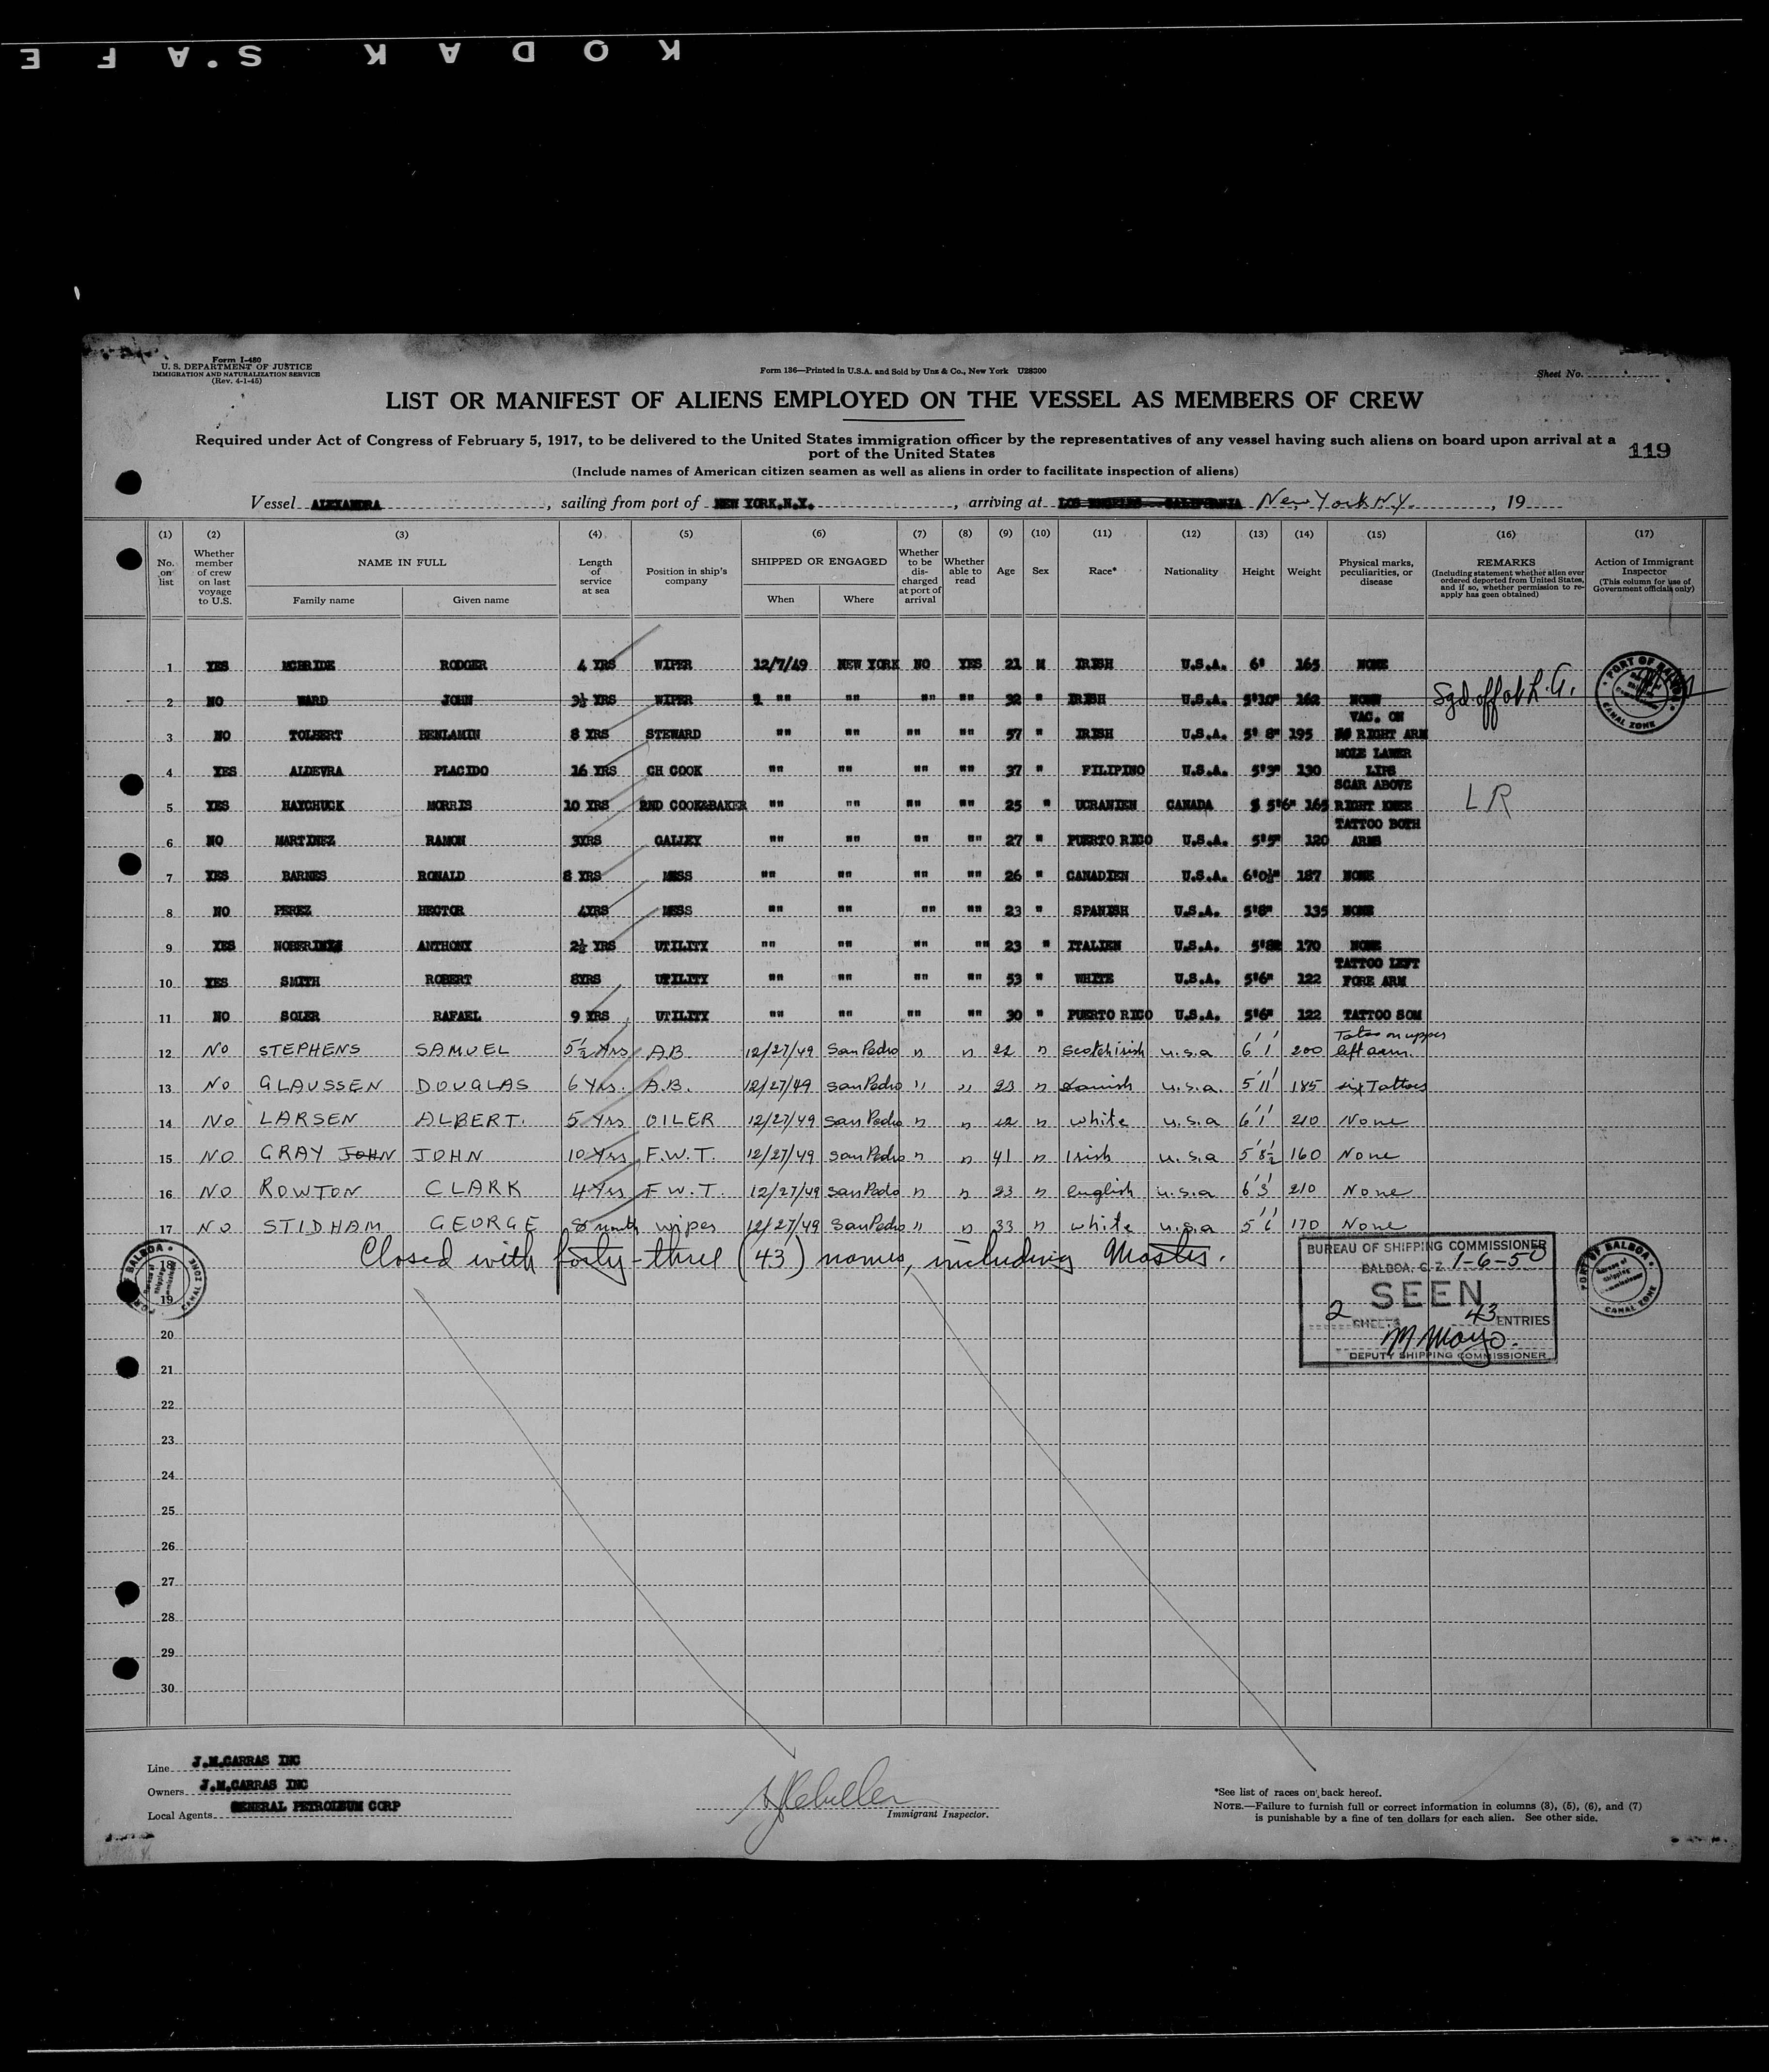 KODAK S.AFE
Form I-480
U. S. DEPARTMENT OF JUSTICE
IMMIGRATION AND NATURALIZATION SERVICE
(Rev. 4-1-45)
Form 136—Printed in U.S.A. and Sold by Unz & Co., New York U28300
Sheet No.
LIST OR MANIFEST OF ALIENS EMPLOYED ON THE VESSEL AS MEMBERS OF CREW
Required under Act of Congress of February 5, 1917, to be delivered to the United States immigration officer by the representatives of any vessel having such aliens on board upon arrival at a
port of the United States
119
(Include names of American citizen seamen as well as aliens in order to facilitate inspection of aliens)
Vessel ALEXANDRA, sailing from port of NEW YORK.N.Y., arriving at LOS ANGELES CALIFORNIA New York N.Y., 19
(1) (2) (3) (4) (5) (6) (7) (8) (9) (10) (11) (12) (13) (14) (15) (16) (17)
No. on list
Whether member of crew on last voyage to U.S.
NAME IN FULL
Family name Given name
Length of service at sea
Position in ship's company
SHIPPED OR ENGAGED
When Where
Whether to be discharged at port of arrival
Whether able to read
Age
Sex
Race*
Nationality
Height
Weight
Physical marks, peculiarities, or disease
REMARKS
(Including statement whether alien ever ordered deported from United States, and if so, whether permission to reapply has been obtained)
Action of Immigrant Inspector
(This column for use of Government officials only)
1 YES MCBRIDE RODGER 4 YRS WIPER 12/7/49 NEW YORK NO YES 21 M IRISH U.S.A. 6' 165 NONE
2 NO WARD JOHN 3½ YRS WIPER "" "" "" "" 32 " IRISH U.S.A. 5'10" 162 NONE Sgd. off at L.A.
3 NO TOLBERT BENLAMIN 8 YRS STEWARD "" "" "" "" 57 " IRISH U.S.A. 5' 8" 195 VAC. ON RIGHT ARM
4 YES ALDEVRA PLACIDO 16 YRS CH COOK "" "" "" "" 37 " FILIPINO U.S.A. 5'3" 130 MOLE LAWER LIPS
5 YES HAYCHUCK MORRIS 10 YRS 2ND COOK&BAKER "" "" "" "" 25 " UCRANIEN CANADA 5'6" 165 SCAR ABOVE RIGHT KNEE L R
6 NO MARTINEZ RAMON 3YRS GALLEY "" "" "" "" 27 " PUERTO RICO U.S.A. 5'5" 120 TATTOO BOTH ARMS
7 YES BARNES RONALD 8 YRS MESS "" "" "" "" 26 " CANADIEN U.S.A. 6'0½" 187 NONE
8 NO PEREZ HECTOR 4YRS MESS "" "" "" "" 23 " SPANISH U.S.A. 5'8" 135 NONE
9 YES ANTHONY 2½ YRS UTILITY "" "" "" "" 23 " ITALIEN U.S.A. 5'8 170 NONE
10 YES SMITH ROBERT 8YRS UTILITY "" "" "" "" 53 " WHITE U.S.A. 5'6" 122 TATTOO LEFT FORE ARM
11 NO SOLER RAFAEL 9 YRS UTILITY "" "" "" "" 30 " PUERTO RICO U.S.A. 5'6" 122 TATTOO SOM
12 No STEPHENS SAMUEL 5½ Yrs A.B. 12/27/49 San Pedro " " 22 " Scotch irish u.s.a 6'1' 200 Tatoo on upper left arm.
13 No GLAUSSEN DOUGLAS 6 Yrs. A.B. 12/27/49 San Pedro " " 23 " Danish u.s.a. 5'11' 185 six Tattoos
14 No LARSEN ALBERT. 5 Yrs OILER 12/27/49 San Pedro " " 22 " white u.s.a 6'1' 210 None
15 NO GRAY JOHN JOHN 10 Yrs F.W.T. 12/27/49 San Pedro " " 41 " Irish u.s.a 5'8½ 160 None
16 NO ROWTON CLARK 4 Yrs F.W.T. 12/27/49 San Pedo " " 23 " english u.s.a 6'3' 210 None
17 NO STIDHAM GEORGE 8 month wiper 12/27/49 San Pedro " " 33 " white u.s.a 5'6' 170 None
Closed with forty-three (43) names, including Master.
18
19
20
21
22
23
24
25
26
27
28
29
30
PORT OF BALBOA
Bureau of Shipping Commissioner
CANAL ZONE
BUREAU OF SHIPPING COMMISSIONER
BALBOA, C. Z. 1-6-50
SEEN
2 SHEETS 43 ENTRIES
DEPUTY SHIPPING COMMISSIONER
PORT OF BALBOA
Bureau of Shipping Commissioner
CANAL ZONE
Line J.M.CARRAS INC
Owners J.M.CARRAS INC
Local Agents GENERAL PETROLEUM CORP
Immigrant Inspector.
*See list of races on back hereof.
NOTE.—Failure to furnish full or correct information in columns (3), (5), (6), and (7)
is punishable by a fine of ten dollars for each alien. See other side.